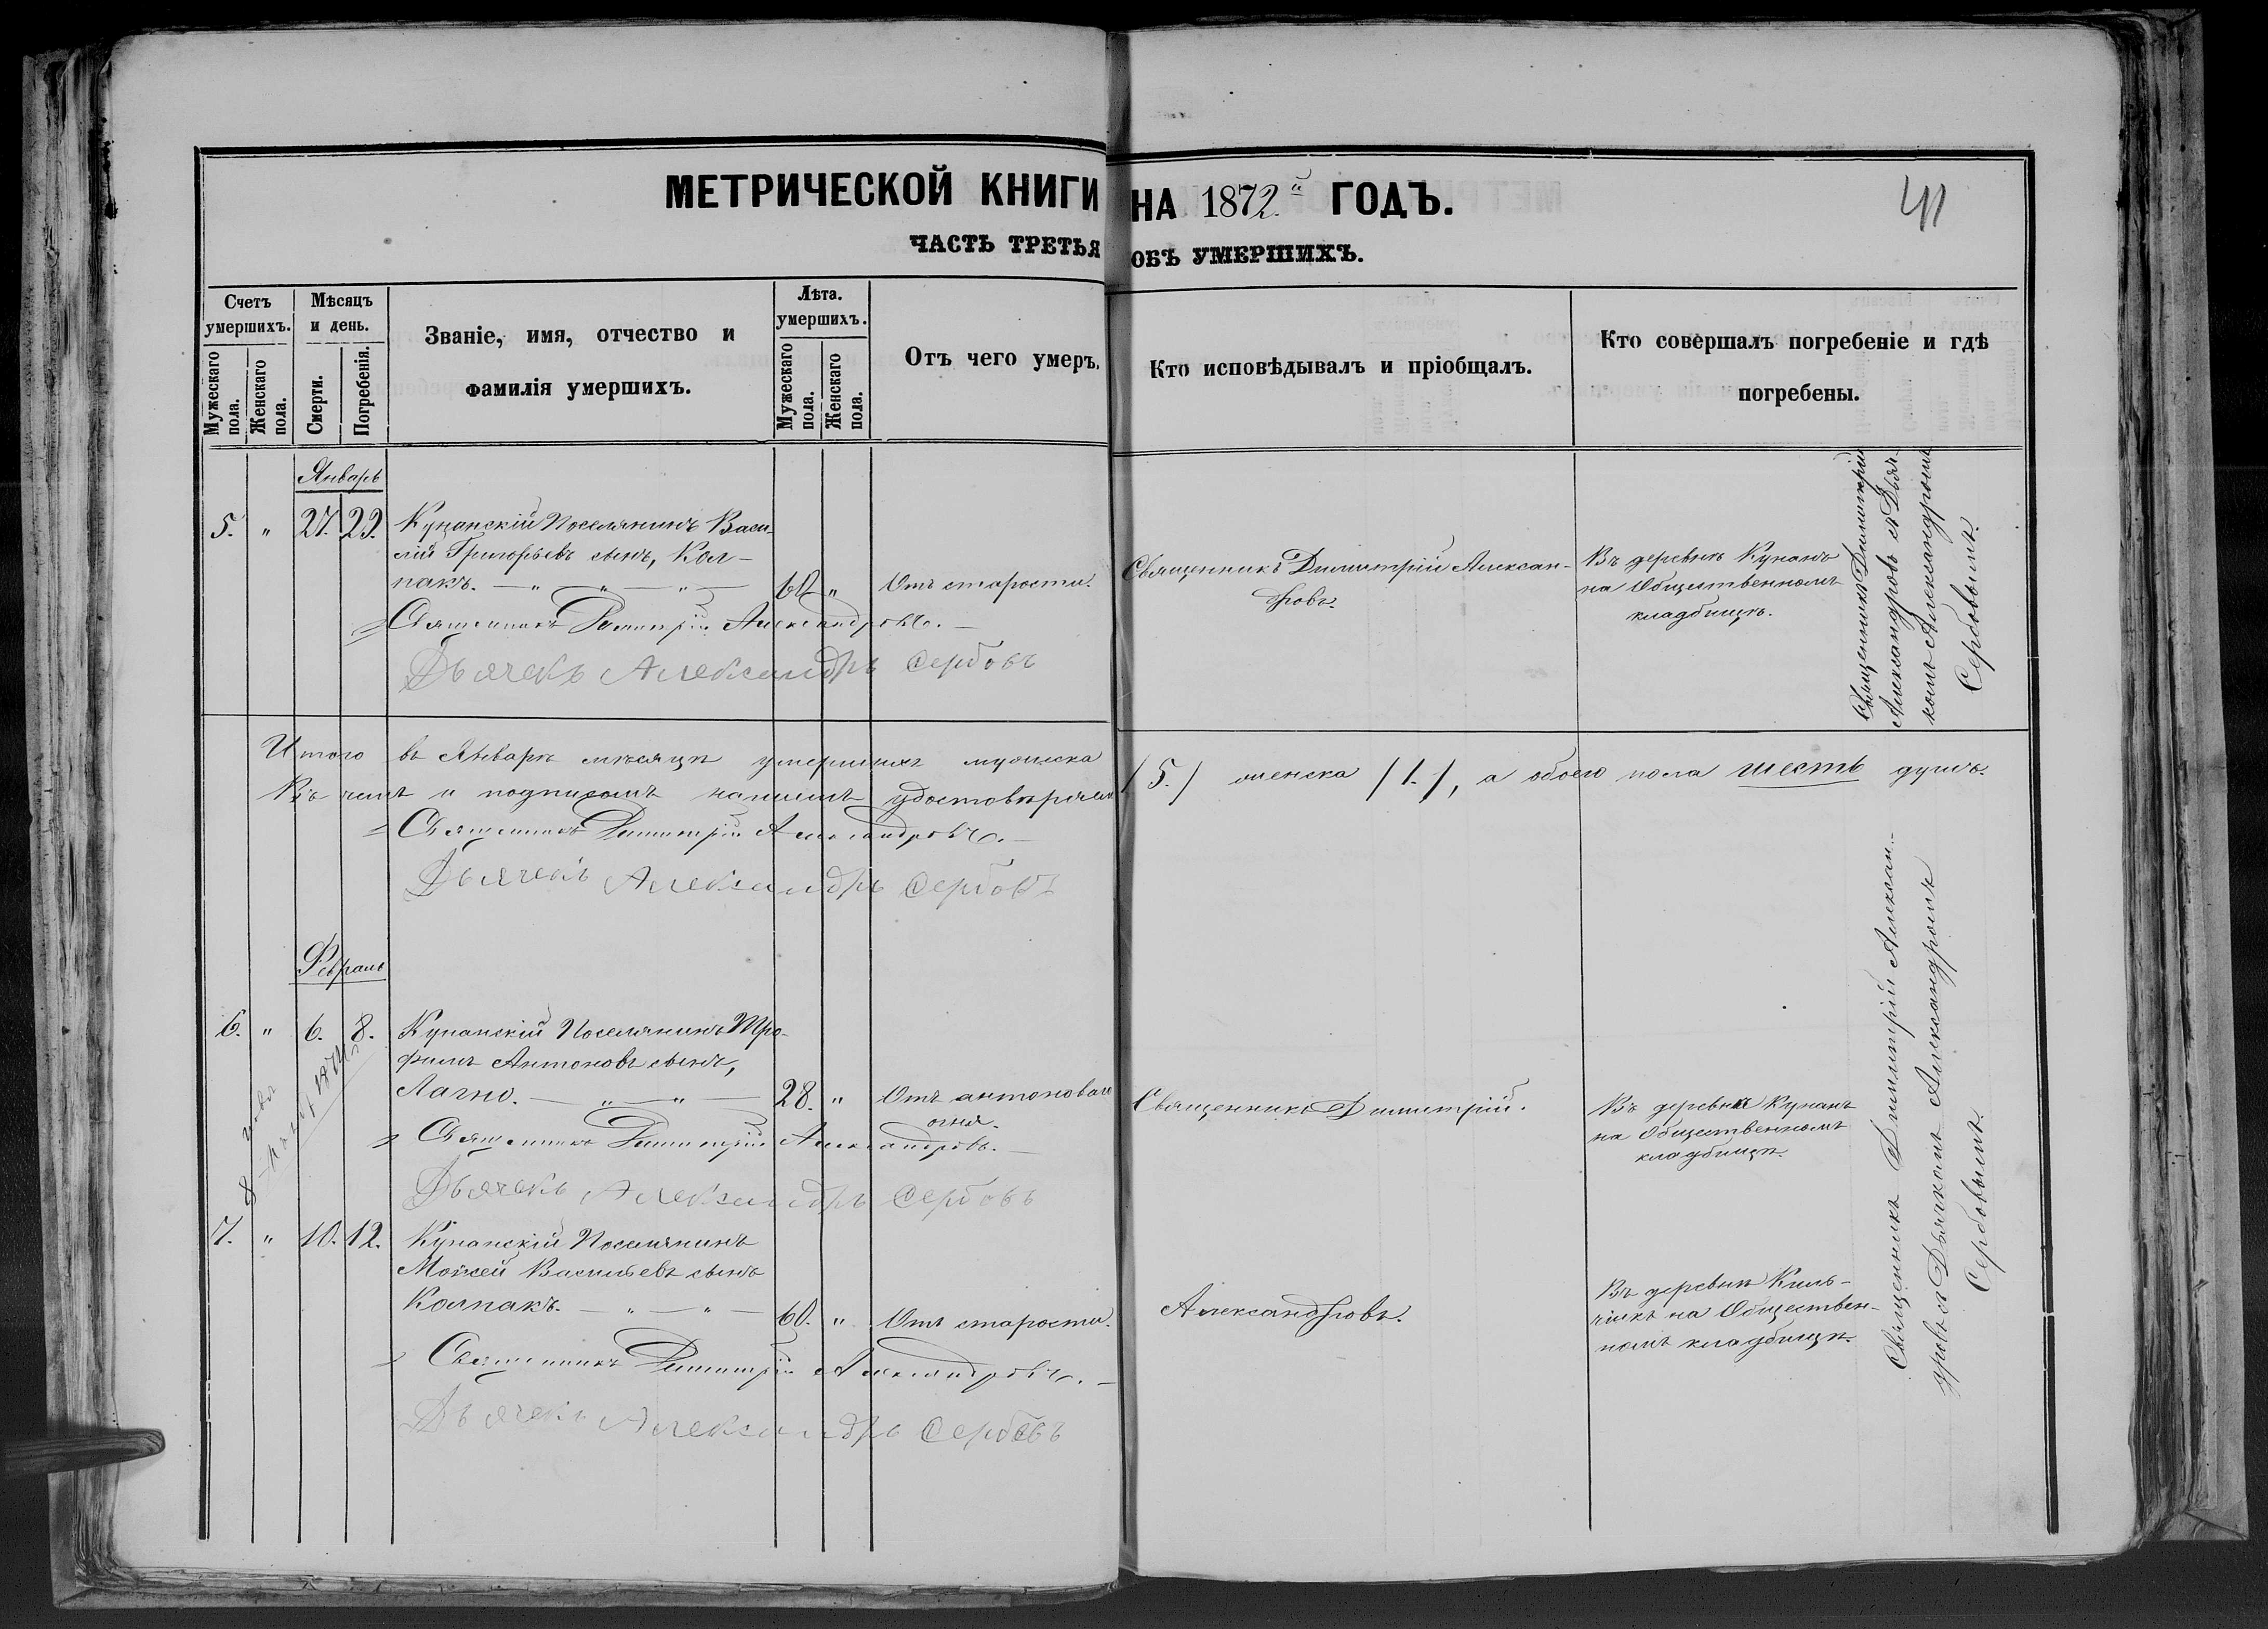 МЕТРИЧЕСКОЙ КНИГИ НА 1872й ГОДЪ.
41
ЧАСТЬ ТРЕТЬЯ ОБЪ УМЕРШИХЪ.
Счетъ умершихъ.
Мужескаго пола.
Женскаго пола.
Мѣсяцъ и день.
Смерти.
Погребенія.
Званіе, имя, отчество и
фамилія умершихъ.
Лѣта. умершихъ.
Мужескаго пола.
Женскаго пола.
Отъ чего умеръ.
Кто исповѣдывалъ и пріобщалъ.
Кто совершалъ погребеніе и гдѣ
погребены.
Январь
5. " 27. 29. Купанскій Поселянинъ Васи-
лій Григорьевъ сынъ, Кол-
пакъ. — " — " — " — 60. " Отъ старости.
Священникъ Димитрій Алексан-
дровъ.
Въ деревнѣ Купанъ
на Общественномъ
кладбищѣ.
Священникъ Димитрій
Александровъ съ Дьяч-
комъ Александромъ
Сербовымъ.
Священникъ Димитрій Александровъ. —
Дьячекъ Александръ Сербовъ
Итого въ Январѣ мѣсяцѣ умершихъ мужеска /5./ женска /1./, а обоего пола шесть душъ.
Въ чемъ и подписомъ нашимъ удостовѣряемъ
Священникъ Димитрій Александровъ. —
Дьячекъ Александръ Сербовъ
Февраль
6. " 6. 8. Купанскій Поселянинъ Тро-
фимъ Антоновъ сынъ,
Лагно. — " — " — 28. " Отъ антонова
огня.
Священникъ Димитрій
Въ деревнѣ Купанъ
на Общественномъ
кладбищѣ.
Священникъ Димитрій Александровъ. —
Дьячекъ Александръ Сербовъ
7. " 10. 12. Купанскій Поселянинъ
Мойсей Васильевъ сынъ
Колпакъ. — " — " — 60. " Отъ старости.
Александровъ.
Въ деревнѣ Киль-
чикѣ на Обществен-
номъ кладбищѣ.
Священникъ Димитрій Алексан-
дровъ съ Дьячкомъ Александромъ
Сербовымъ.
Священникъ Димитрій Александровъ. —
Дьячекъ Александръ Сербовъ